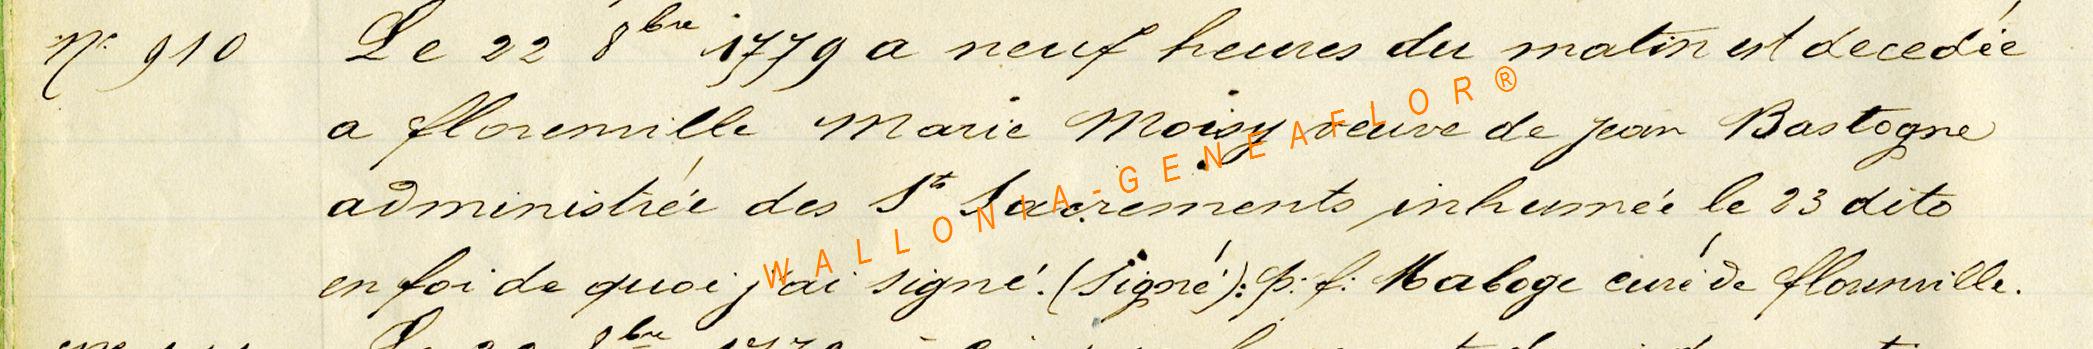 N° 910 Le 22 8bre 1779 a neuf heures du matin est decedée
a florenville Marie Moisy veuve de jean Bastogne
administrée des Sts Sacrements inhumée le 23 dito
en foi de quoi j'ai signé. (Signé): p: f: Maboge curé de florenville.
WALLONIA-GENEAFLOR®